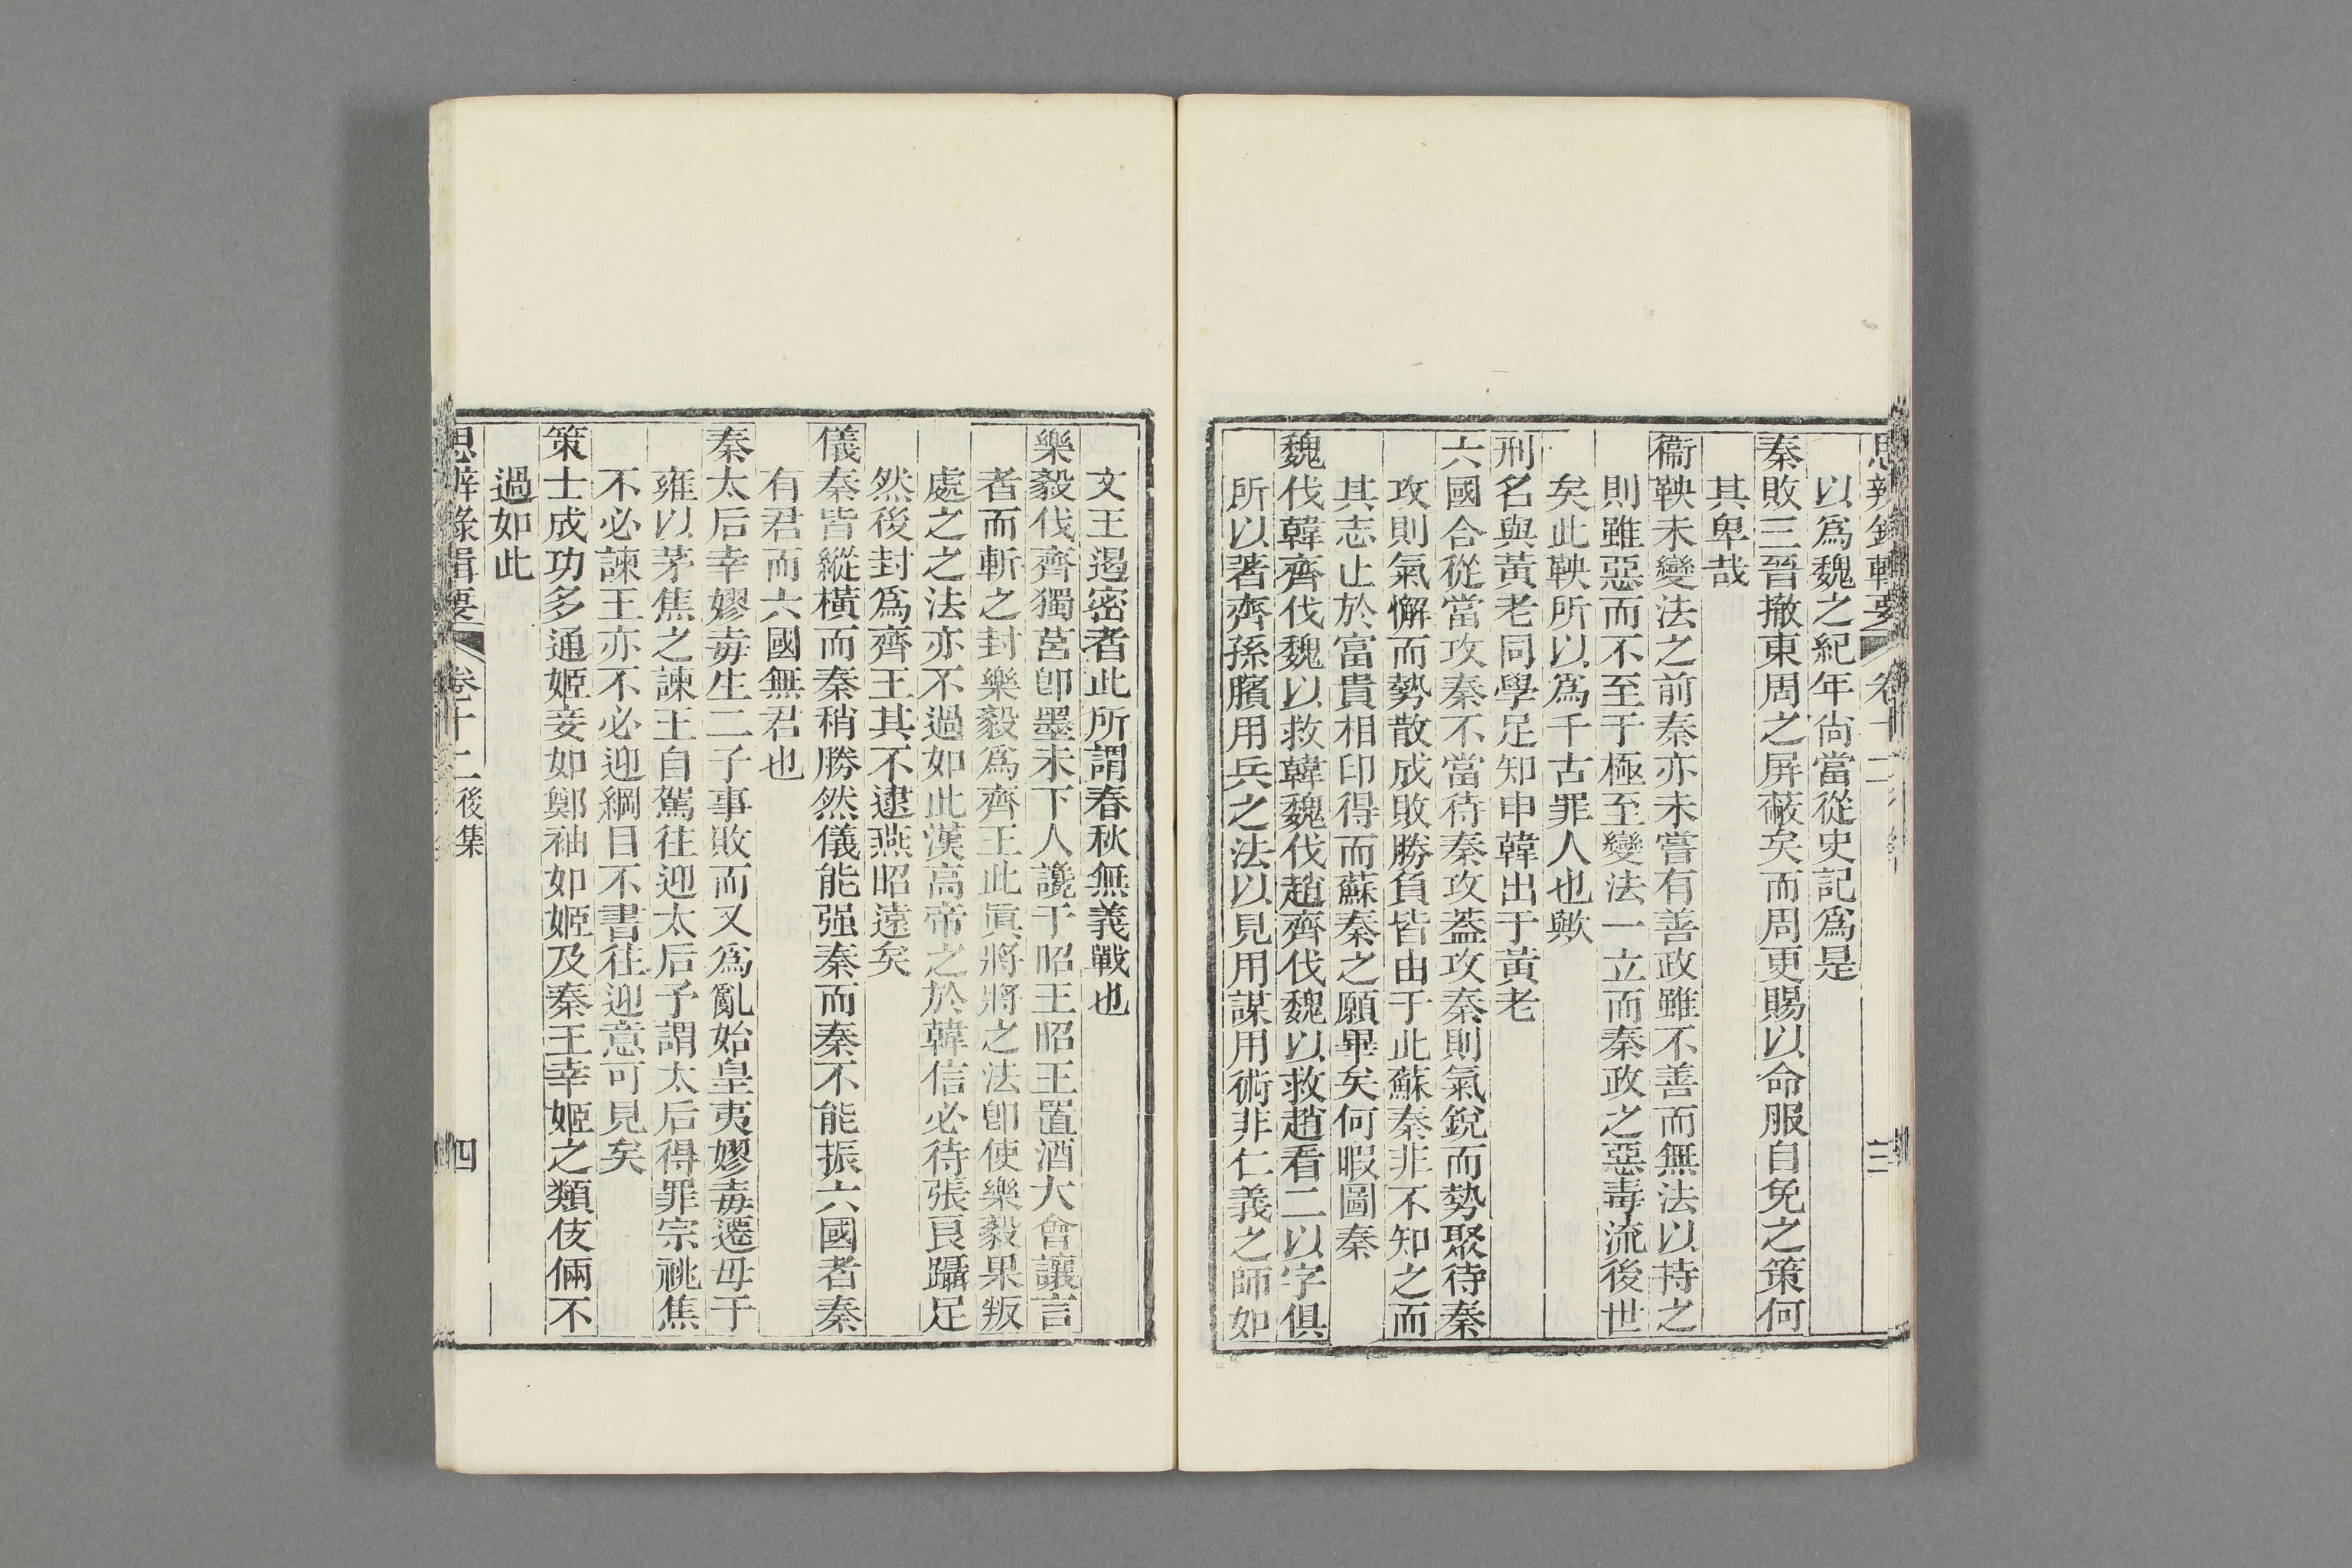 思辨錄輯要 卷十二 三
以爲魏之紀年尙當從史記爲是
秦敗三晉撤東周之屛蔽矣而周更賜以命服自免之策何
其卑哉
衞鞅未變法之前秦亦未嘗有善政雖不善而無法以持之
則雖惡而不至于極至變法一立而秦政之惡毒流後世
矣此鞅所以爲千古罪人也歟
刑名與黃老同學足知申韓出于黃老
六國合從當攻秦不當待秦攻葢攻秦則氣銳而勢聚待秦
攻則氣懈而勢散成敗勝負皆由于此蘇秦非不知之而
其志止於富貴相印得而蘇秦之願畢矣何暇圖秦
魏伐韓齊伐魏以救韓魏伐趙齊伐魏以救趙看二以字俱
所以著齊孫臏用兵之法以見用謀用術非仁義之師如
文王遏密者此所謂春秋無義戰也
樂毅伐齊獨莒卽墨未下人讒于昭王昭王置酒大會讓言
者而斬之封樂毅爲齊王此眞將將之法卽使樂毅果叛
處之之法亦不過如此漢高帝之於韓信必待張良躡足
然後封爲齊王其不逮燕昭遠矣
儀秦皆縱橫而秦稍勝然儀能强秦而秦不能振六國者秦
有君而六國無君也
秦太后幸嫪毐生二子事敗而又爲亂始皇夷嫪毐遷母于
雍以茅焦之諫王自駕往迎太后予謂太后得罪宗祧焦
不必諫王亦不必迎綱目不書往迎意可見矣
策士成功多通姬妾如鄭袖如姬及秦王幸姬之類伎倆不
過如此
思辨錄輯要 卷十二 後集 四